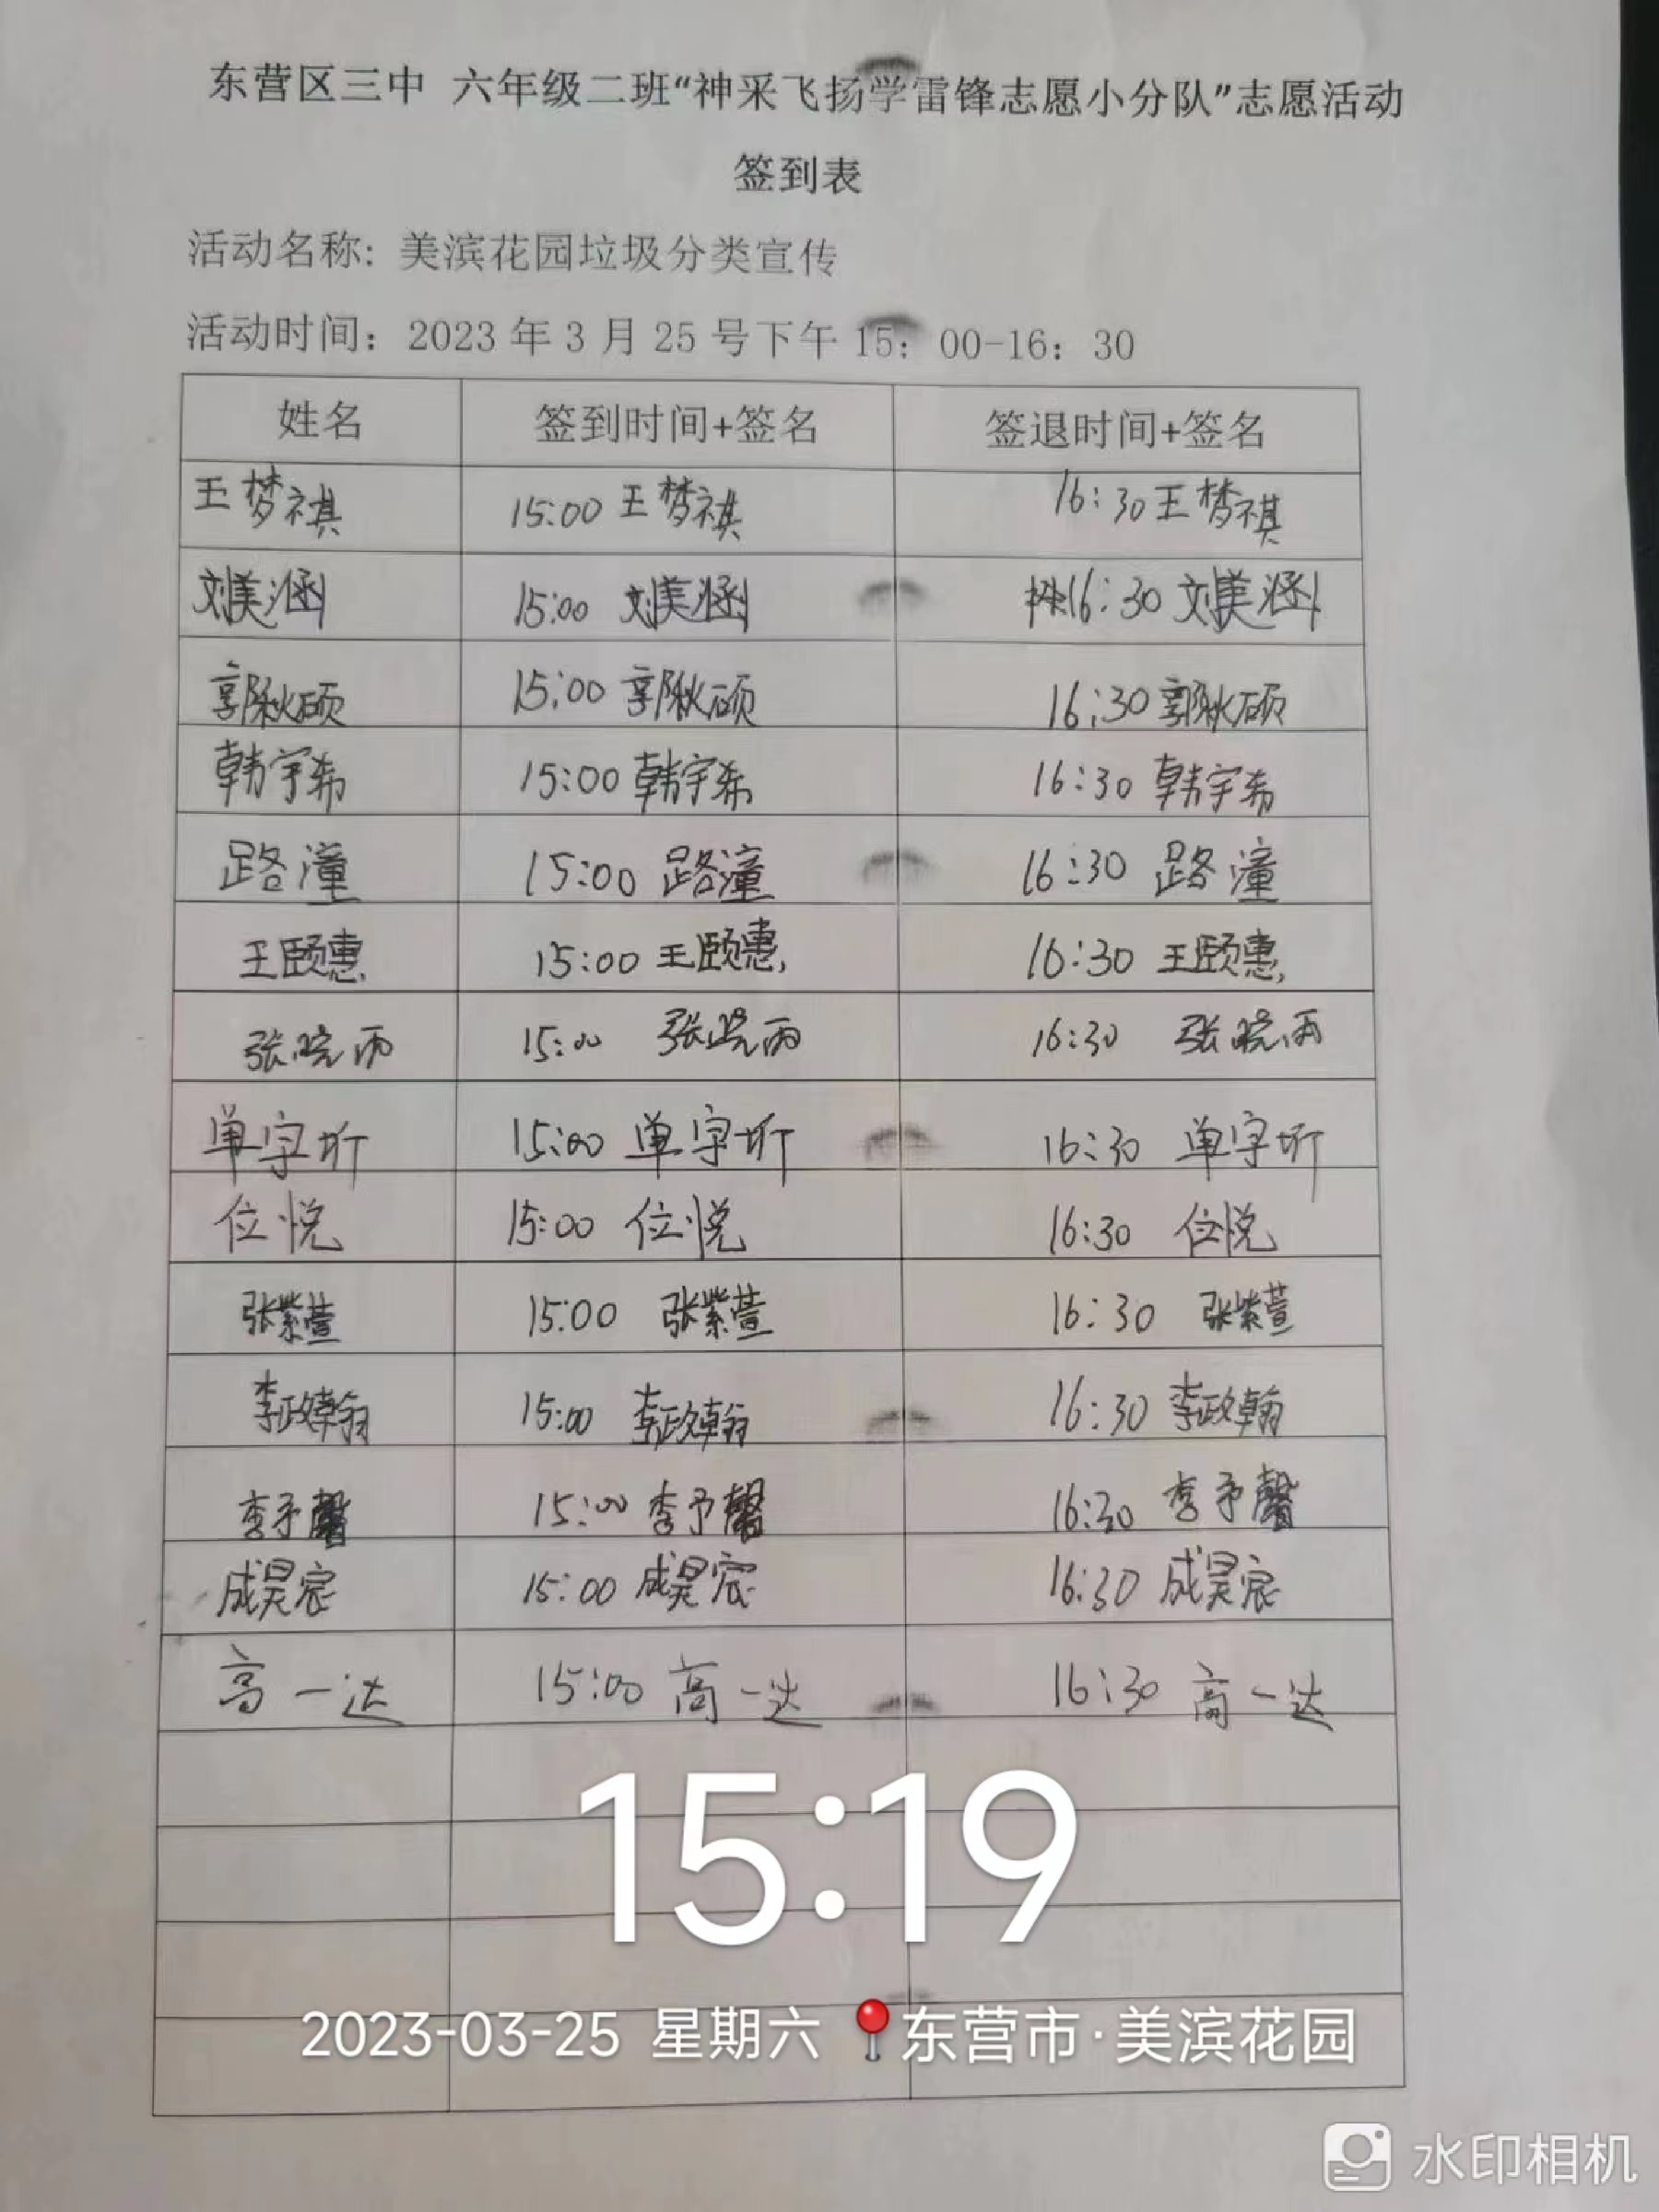 东营区三中 六年级二班“神采飞扬学雷锋志愿小分队”志愿活动
签到表
活动名称: 美滨花园垃圾分类宣传
活动时间: 2023 年 3 月 25 号下午 15: 00-16: 30
姓名 签到时间+签名 签退时间+签名
王梦祺 15:00 王梦祺 16:30 王梦祺
刘美涵 15:00 刘美涵 16:30 刘美涵
郭秋硕 15:00 郭秋硕 16:30 郭秋硕
韩宇希 15:00 韩宇希 16:30 韩宇希
路潼 15:00 路潼 16:30 路潼
王颐惠 15:00 王颐惠 16:30 王颐惠
张晓雨 15:00 张晓雨 16:30 张晓雨
单字圻 15:00 单字圻 16:30 单字圻
位悦 15:00 位悦 16:30 位悦
张紫萱 15:00 张紫萱 16:30 张紫萱
李政翰 15:00 李政翰 16:30 李政翰
李予馨 15:00 李予馨 16:30 李予馨
成昊宸 15:00 成昊宸 16:30 成昊宸
高一达 15:00 高一达 16:30 高一达
15:19
2023-03-25 星期六 东营市·美滨花园
水印相机